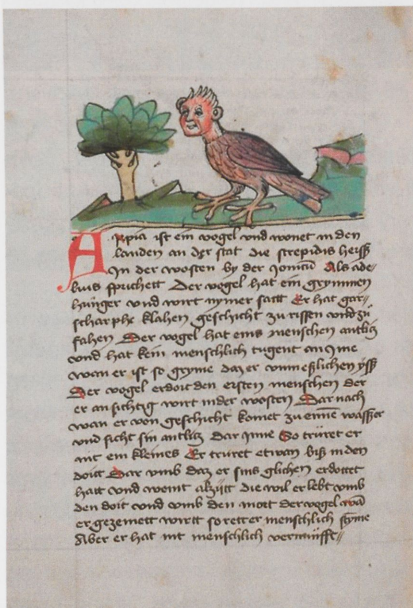 Arpia ist ein vogel vnd wonet in den
landen an der stat die strepidis heiss
In der wosten by der Jonicū Als ade
linus sprichett Der vogel hat ein grymmen
hunger vnd wirt nymer satt Er hat gar
scharphe klahen geschicht zu rissen vnd zu
fahen Der vogel hat eins menschen antlicz
vnd hat kein menschlich tugent an Ime
wan er ist so gryme daz er vnmesslichen ysst
Der vogel erdoit den ersten menschen der
er ansichtig wirt in der wosten Dar nach
wan er von geschicht komet zu eime wasser
vnd sicht sin antlicz dar Inne So truret er
nit ein kleines Er truret etwan biss in den
doitt Dar vmb daz er sins glichen erdottet
hatt vnd weint alziitt die wil er lebt vmb
den doit vnd vmb den mort der vogel wan
er gezemett wirtt so rett er menschlich styme
Aber er hat nit menschlich vernunfft